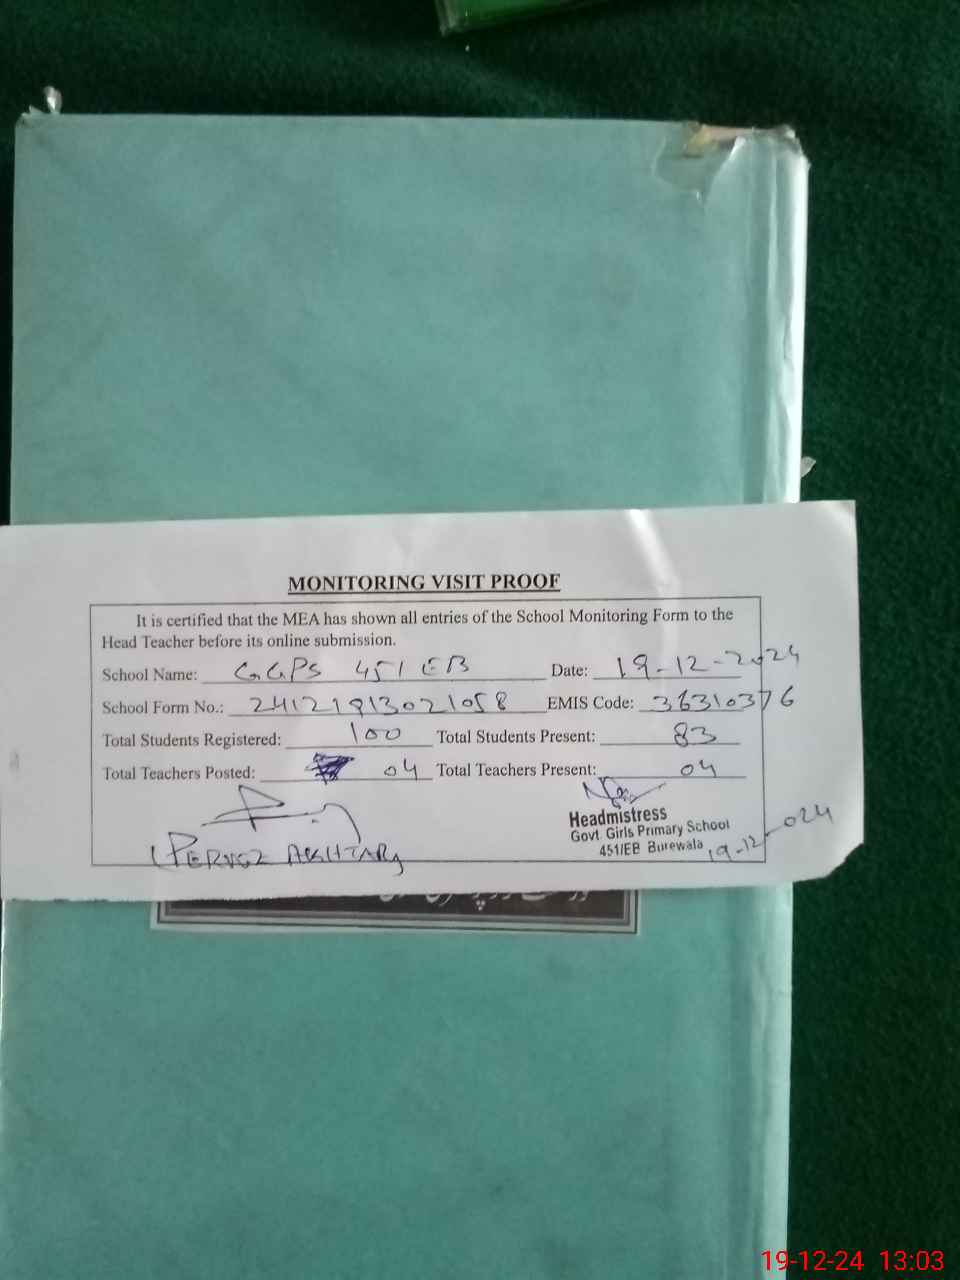 MONITORING VISIT PROOF
It is certified that the MEA has shown all entries of the School Monitoring Form to the
Head Teacher before its online submission.
School Name: GGPS 451 EB Date: 19-12-2024
School Form No.: 24121913021058 EMIS Code: 36310376
Total Students Registered: 100 Total Students Present: 83
Total Teachers Posted: 04 Total Teachers Present: 04
Headmistress
Govt Girls Primary School
451/EB Burewala 19-12-2024
(PERVEZ AKHTAR)
19-12-24 13:03